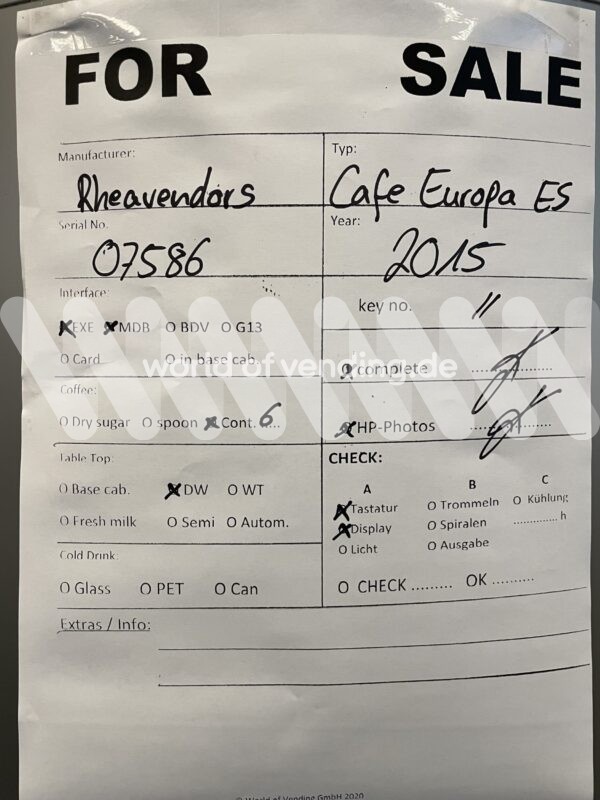 FOR SALE
Manufacturer: Typ:
Rheavendors Cafe Europa ES
Serial No. Year:
07586 2015
Interface: key no. //
EXE MDB O BDV O G13
O Card O in base cab. complete
world of vending.de
Coffee:
O Dry sugar O spoon Cont. 6 HP-Photos
Table Top: CHECK:
O Base cab. DW O WT
A B C
Tastatur O Trommeln O Kühlung
O Fresh milk O Semi O Autom. Display O Spiralen .............. h
O Licht O Ausgabe
Cold Drink:
O Glass O PET O Can O CHECK ......... OK ..........
Extras / Info:
© World of Vending GmbH 2020